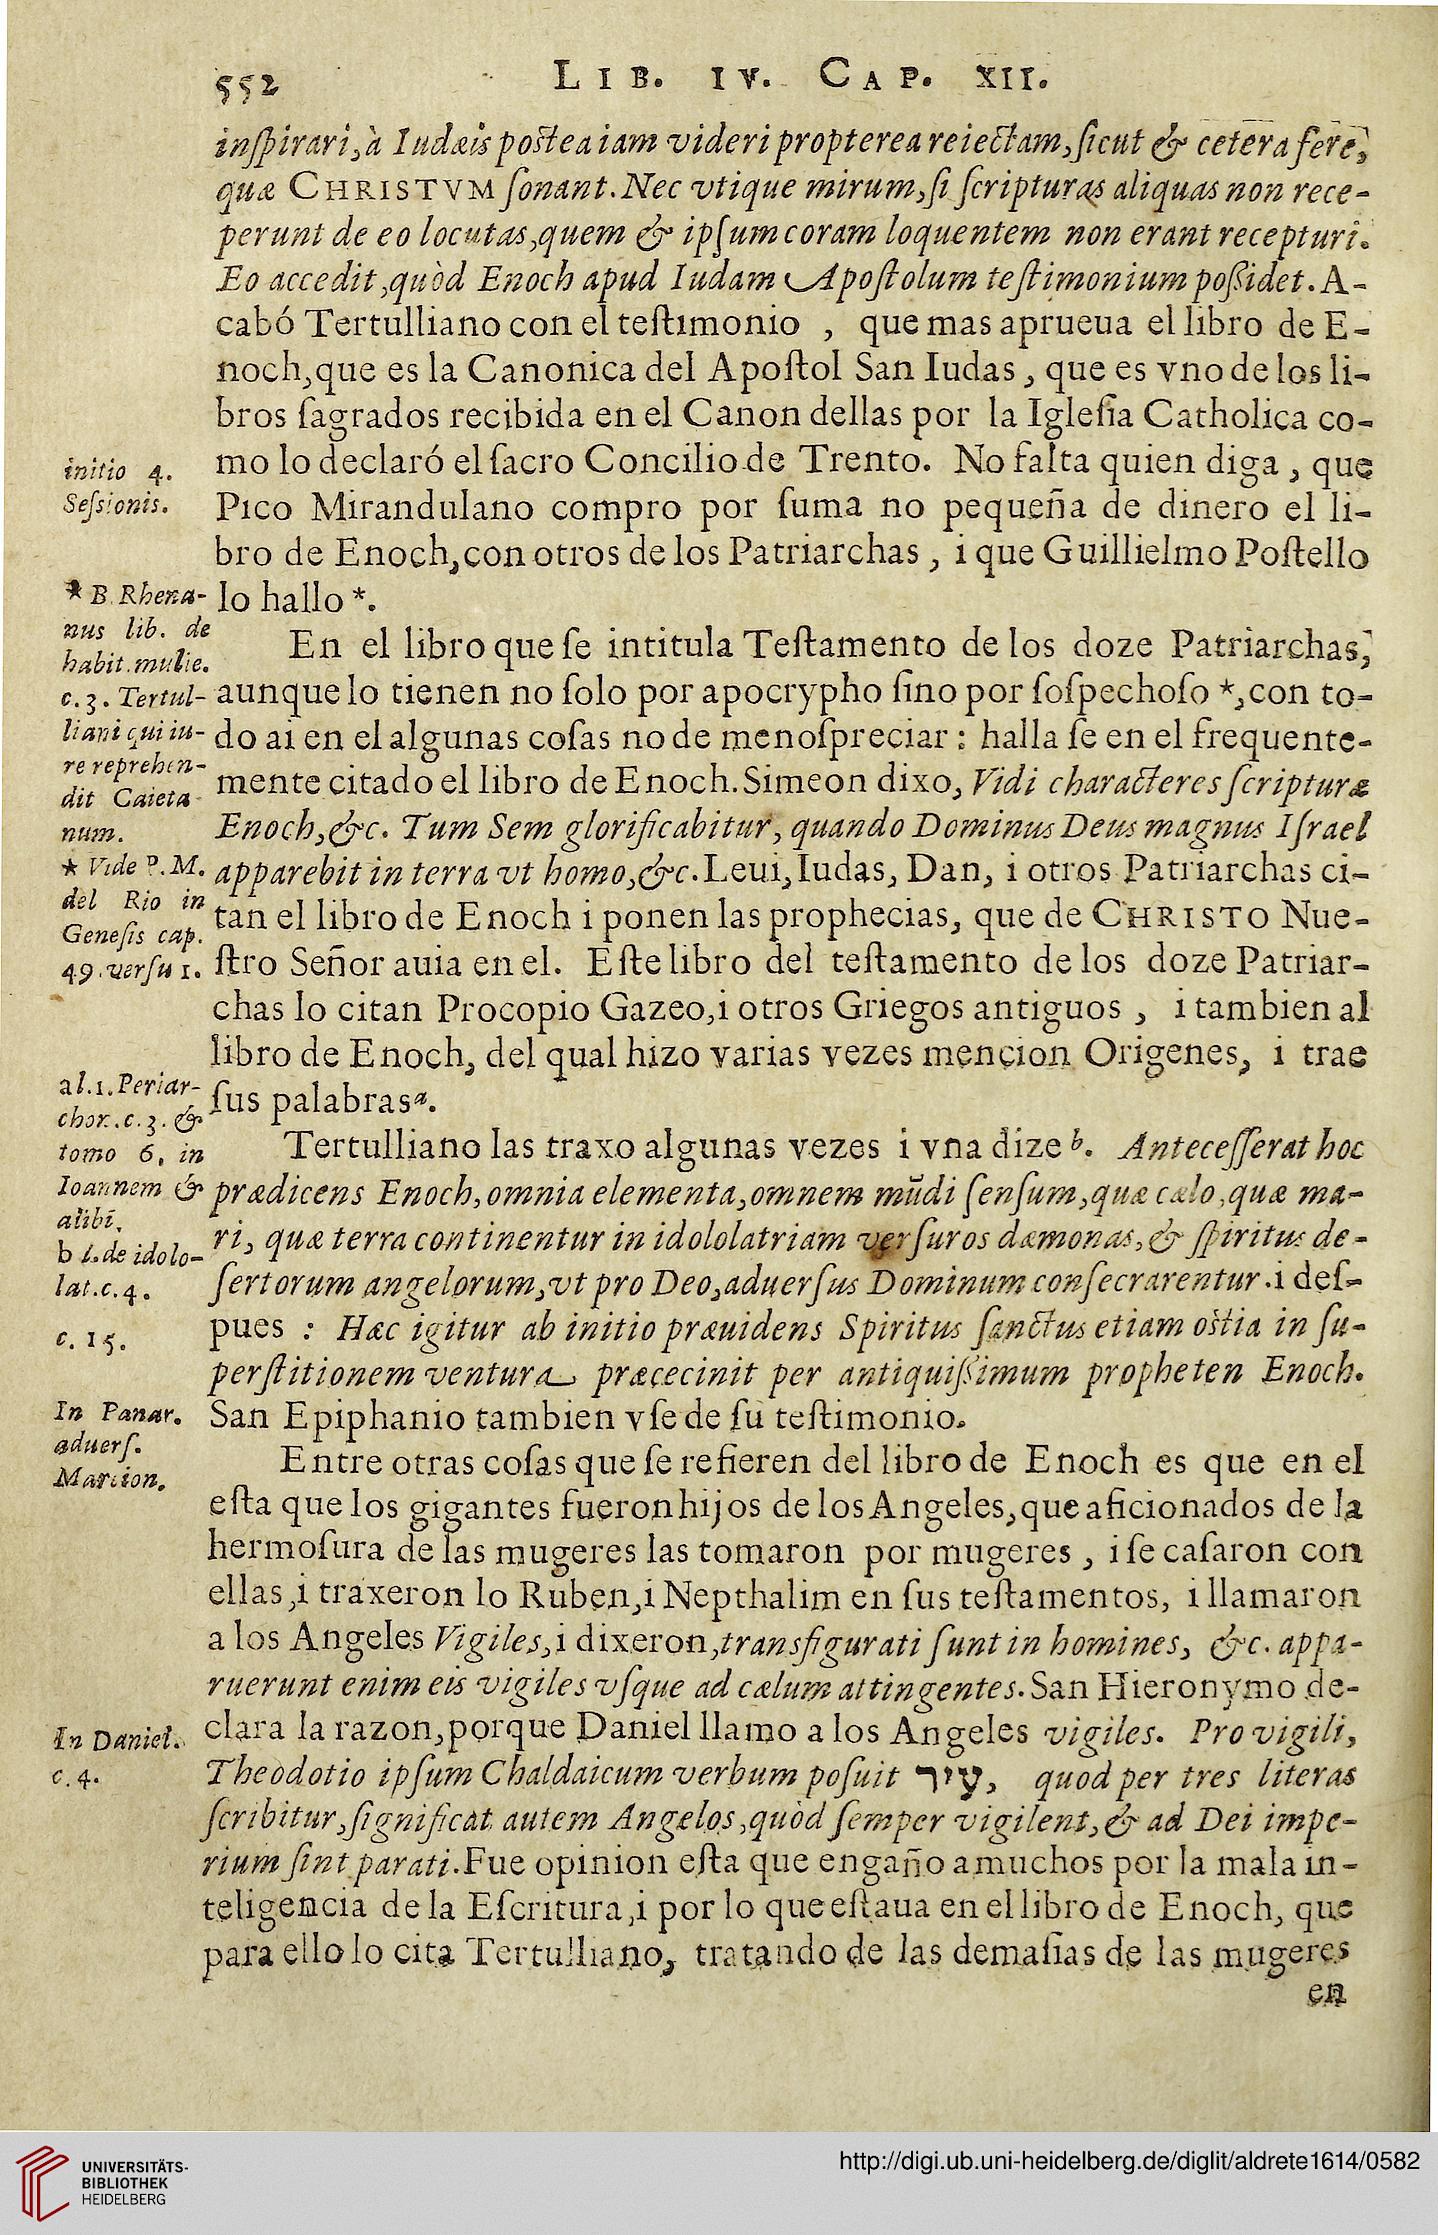 552
LIB. IV. CAP. XII.
inſpirari, à Iudæis poſtea iam videri propterea reiectam, ſicut & cetera fere,
quæ CHRISTVM ſonant. Nec vtique mirum, ſi ſcripturas aliquas non rece-
perunt de eo locutas, quem & ipſum coram loquentem non erant recepturi.
Eo accedit, quòd Enoch apud Iudam Apoſtolum teſtimonium poßidet. A-
cabó Tertulliano con el teſtimonio , que mas aprueua el libro de E-
noch, que es la Canonica del Apoſtol San Iudas, que es vno de los li-
bros ſagrados recibida en el Canon dellas por la Igleſia Catholica co-
mo lo declaró el ſacro Concilio de Trento. No falta quien diga, que
Pico Mirandulano compro por ſuma no pequeña de dinero el li-
bro de Enoch, con otros de los Patriarchas, i que Guillielmo Poſtello
lo hallo *.
initio 4.
Seſsionis.
* B. Rhena-
nus lib. de
habit. mulie.
c. 3. Tertul-
liani qui iu-
re reprehen-
dit Caieta-
num.
En el libro que ſe intitula Teſtamento de los doze Patriarchas,
aunque lo tienen no ſolo por apocrypho ſino por ſoſpechoſo *, con to-
do ai en el algunas coſas no de menoſpreciar: halla ſe en el frequente-
mente citado el libro de Enoch. Simeon dixo, Vidi characteres ſcripturæ
Enoch, &c. Tum Sem glorificabitur, quando Dominus Deus magnus Iſrael
apparebit in terra vt homo, &c. Leui, Iudas, Dan, i otros Patriarchas ci-
tan el libro de Enoch i ponen las prophecias, que de CHRISTO Nue-
ſtro Señor auia en el. Eſte libro del teſtamento de los doze Patriar-
chas lo citan Procopio Gazeo, i otros Griegos antiguos , i tambien al
libro de Enoch, del qual hizo varias vezes mencion Origenes, i trae
ſus palabras a.
* Vide P. M.
del Rio in
Geneſis cap.
49. verſu 1.
a l. 1. Periar-
chor. c. 3. &
tomo 6. in
Ioannem &
alibi.
Tertulliano las traxo algunas vezes i vna dize b. Anteceſſerat hoc
prædicens Enoch, omnia elementa, omnem mũdi ſenſum, quæ cælo, quæ ma-
ri, quæ terra continentur in idololatriam verſuros dæmonas, & ſpiritus de-
ſertorum angelorum, vt pro Deo, aduerſus Dominum conſecrarentur. i deſ-
pues : Hæc igitur ab initio præuidens Spiritus ſanctus etiam oſtia in ſu-
perſtitionem ventura præcecinit per antiquißimum propheten Enoch.
San Epiphanio tambien vſe de ſu teſtimonio.
b l. de idolo-
lat. c. 4.
c. 15.
In Panar.
aduerſ.
Marcion.
Entre otras coſas que ſe refieren del libro de Enoch es que en el
eſta que los gigantes fueron hijos de los Angeles, que aficionados de la
hermoſura de las mugeres las tomaron por mugeres, i ſe caſaron con
ellas, i traxeron lo Ruben, i Nepthalim en ſus teſtamentos, i llamaron
a los Angeles Vigiles, i dixeron, transfigurati ſunt in homines, &c. appa-
ruerunt enim eis vigiles vſque ad cælum attingentes. San Hieronymo de-
clara la razon, porque Daniel llamo a los Angeles vigiles. Pro vigili,
Theodotio ipſum Chaldaicum verbum poſuit עיר, quod per tres literas
ſcribitur, ſignificat autem Angelos, quòd ſemper vigilent, & ad Dei impe-
rium ſint parati. Fue opinion eſta que engaño a muchos por la mala in-
teligencia de la Eſcritura, i por lo que eſtaua en el libro de Enoch, que
para ello lo cita Tertulliano, tratando de las demaſias de las mugeres
en
In Daniel.
c. 4.
UNIVERSITÄTS-
BIBLIOTHEK
HEIDELBERG
http://digi.ub.uni-heidelberg.de/diglit/aldrete1614/0582